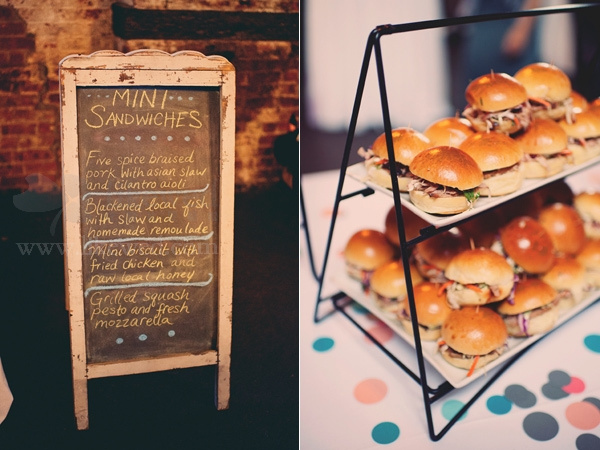 MINI
SANDWICHES
Five spice braised
pork with asian slaw
and cilantro aioli
Blackened local fish
with slaw and
homemade remoulade
Mini biscuit with
fried chicken and
raw local honey
Grilled squash
pesto and fresh
mozzarella